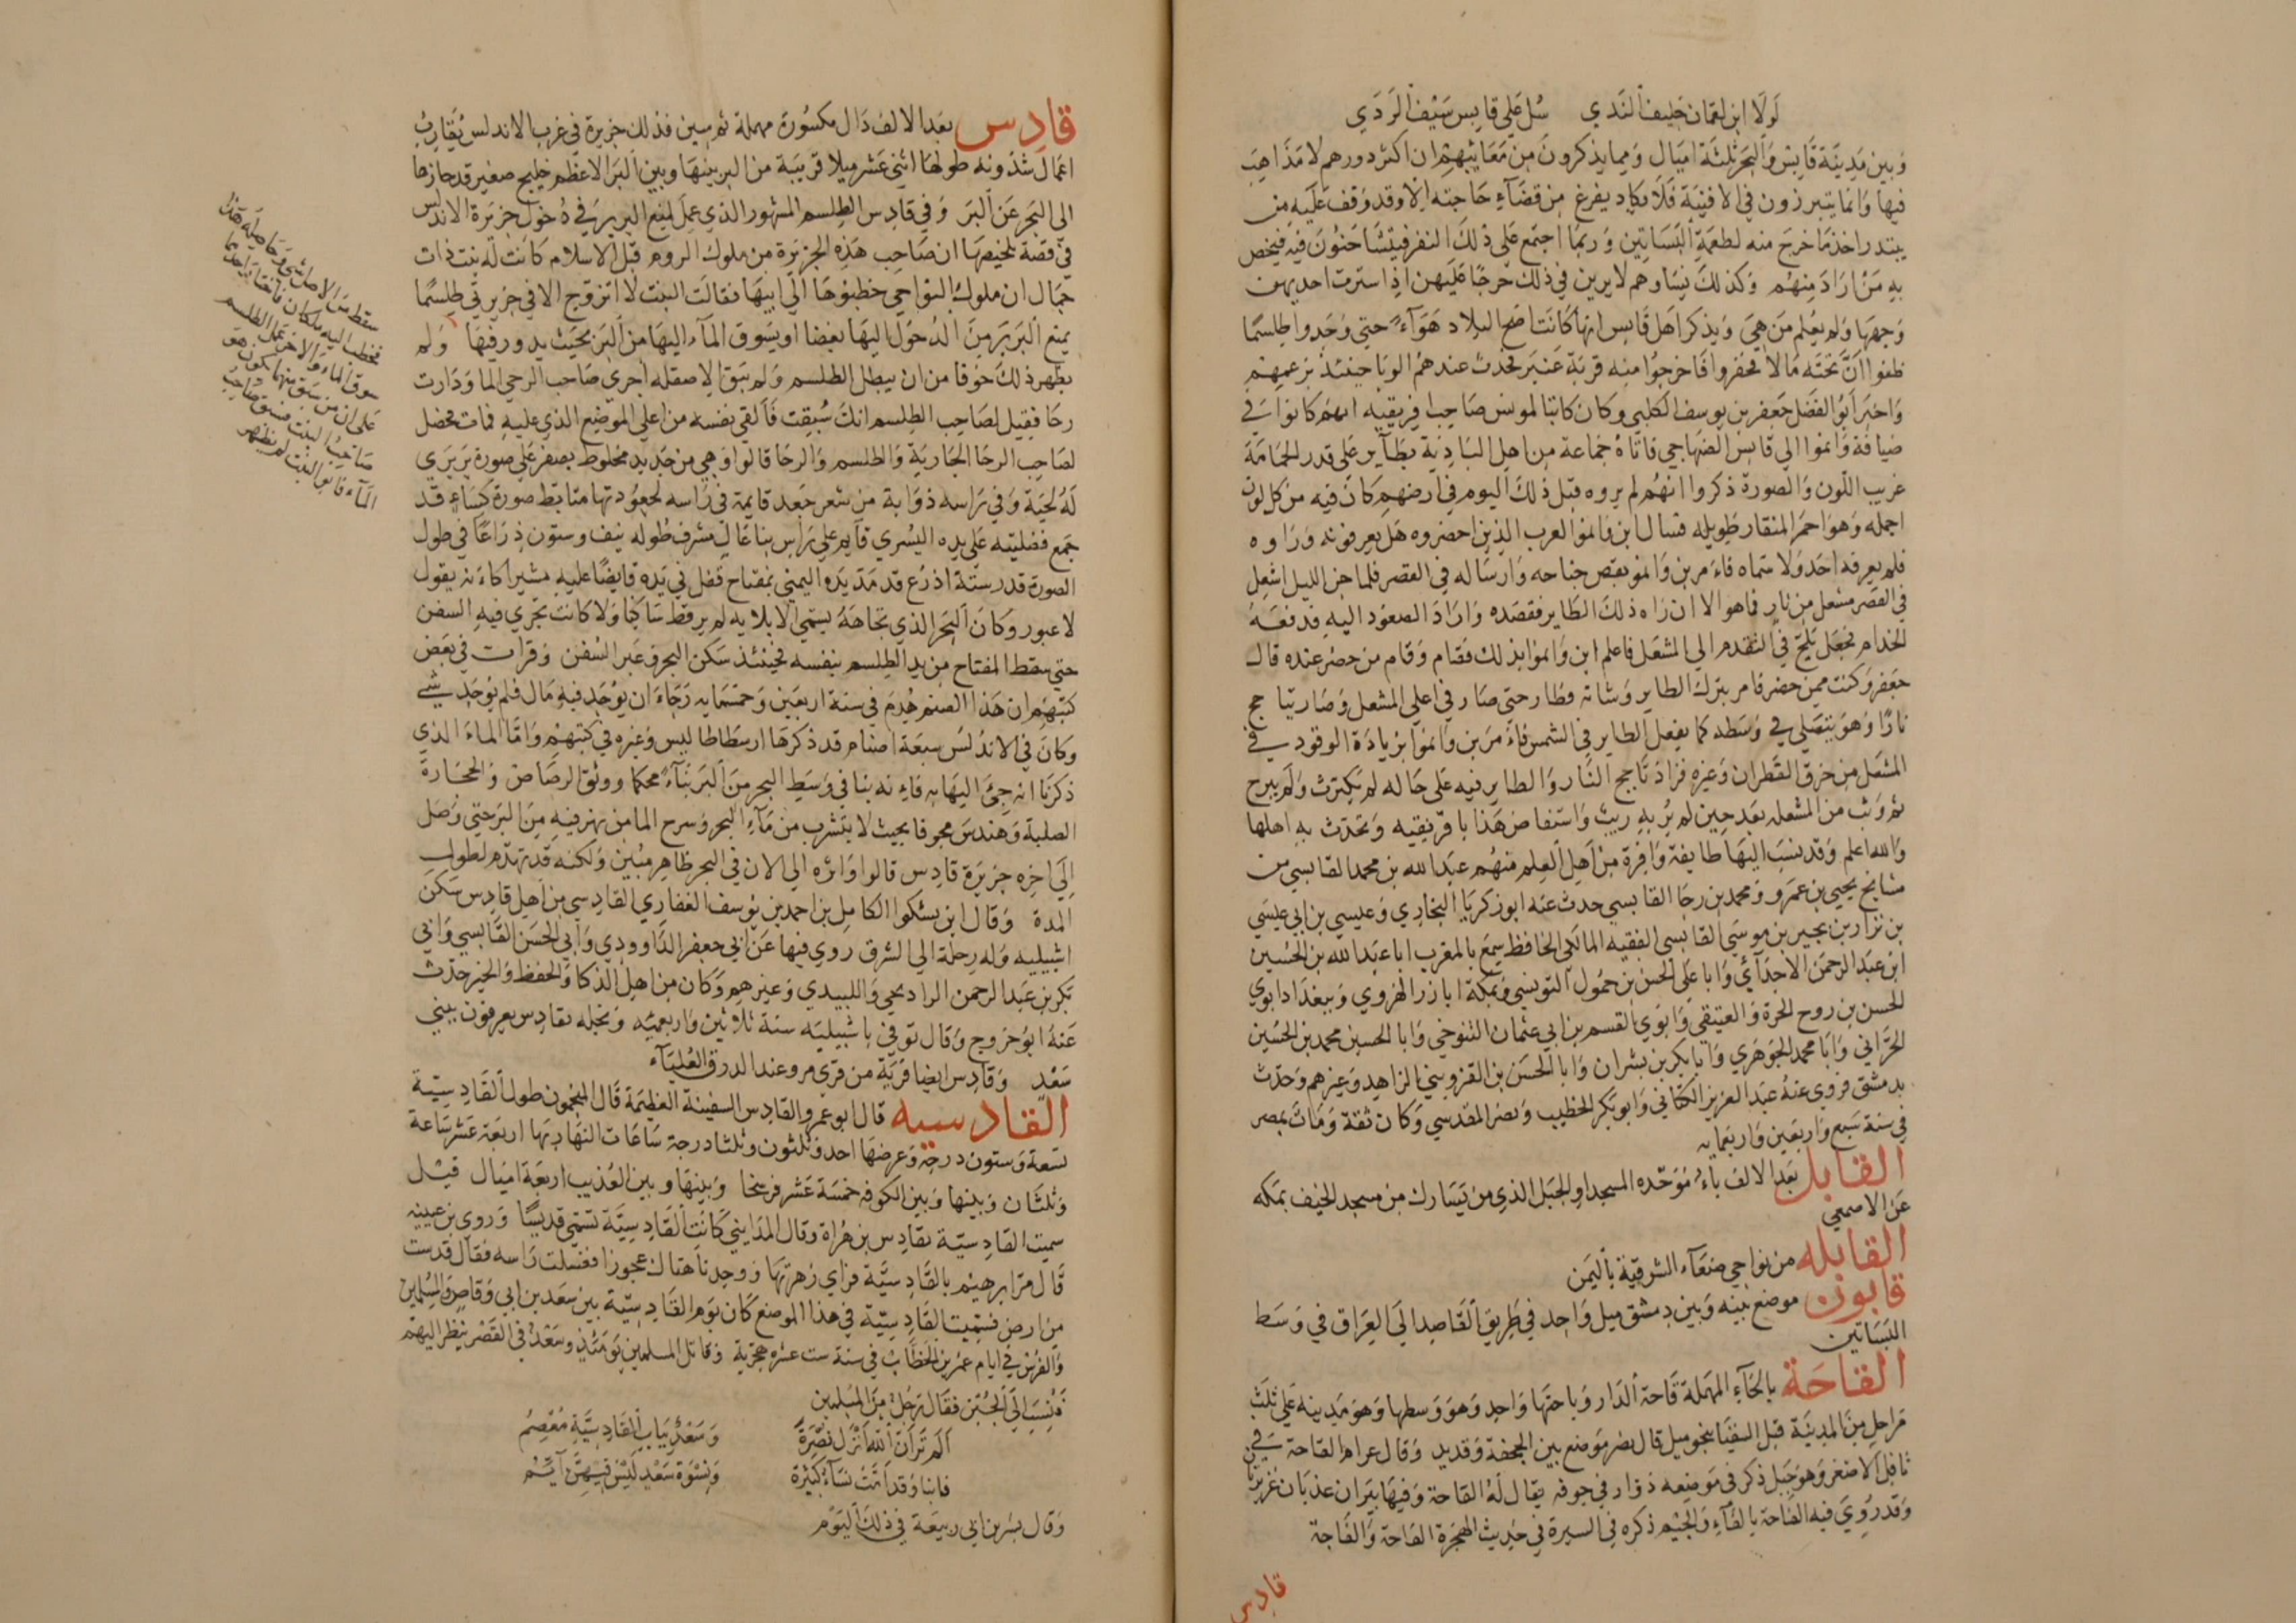 لَولَا ابن لقمان حَليف النَدي    سُل عَلي قابس سَيْف الرَدَي
وَبين مَدينَة قابس وَالبحَر ثلثَة اميَال وَمما يذكرونَ من مَعَايبهم ان اكثر دورهم لا مَذاهِبَ
فيها وَانما يتبرزون في الافنيَة فَلا يكاد يفرغ من قضَآء حَاجته الا وقد وَقف عَليه من
يبتدر اخذ مَا خرج منه لطعمة البَسَاتِين وَربما اجتمع عَلي ذلكَ النفر فيتشاحَنُونَ فيه فيخص
بهِ مَنْ ارَادَ مِنهُم وَكذلكَ نسَاوهم لا يرين في ذلك حرجًا عَليهن اذا استرت احديهن
وَجهَها وَلم يعُلم مَن هيَ وَيذكر اهَل قابس انها كانت اصَح البلاد هَوَآءً حتي وَجَدوا طلسمًا
ظنوا انَّ تحته مَالا فحفروا فاخرجُوا منه قربَة عَنبَر فحدث عندهم الوَبا حينئذ بزعمهم
وَاخبَر ابُوُ الفَضل جَعفر بن يوسف الكلبي وكان كاتبا لمونس صَاحب افريقيه انهم كانوا في
ضيافة وَانموا الي قابس الصَنهاجي فاتاهُ جماعة من اهل البَاديَة بطآير عَلي قدر الحَمامَة
غريب اللون وَالصورة ذكروا انهُم لم يروه قبَل ذلكَ اليوم في ارضهم كانَ فيه من كل لون
اجمله وَهوَ احمَر المنقار طَويله فسَال ابن وَانمو العرب الذينَ احضروه هَل يعرفونه وَرَاوه
فلم يعرفه احَد وَلا سَماه فاءَمر بن وَانمو بقص جناحه وَارسَاله في القصر فلما جن الليل اشعل
في القصَر مشعل من نار فما هو الا ان رَاه ذلكَ الطَاير فقصَده وَارَادَ الصعُود اليه فدفعَهُ
الخدام فجَعَل يلح في التقدم الي المشعَل فاعلم ابن وَانموُا بذلك فقَام وَقام من حضَر عنده قال
جعَفر وَكنت ممن حضر فامر بترك الطاير وَشانه فطار حتي صَار في اعلي المشعل وَصَار يتاجج
نارًا وَهوَ يتفَلي في وَسَطه كما يفعل الطاير في الشمس فاءَمَر بن وَانموا بزيادَة الوقود في
المشعَل من خرق القطران وَغيره فزادَ تاجج النَار وَالطاير فيه عَلي حَاله لم يكترث وَلَم يبرح
ثم وَثب من المشعله بعَد حين لم يُر به ريبُ وَاستفاض هَذا بافريقيه وَتحَدث بهِ اهلها
وَالله اعلم وَقد ينسَب اليهَا طايفة وَافرة من اَهِل العِلم منهُم عبَد الله بن محمد القابسي من
مشايخ يحيي بن عمَرو وَمحمد بن رجَا القابسي حدث عنَه ابو زكريَا البخاري وَعيسي بن ابي عيسَي
بن نزار بن بجير بن موسَي القابسي الفقيه المالكي الحافظ سَمِعَ بالمغرب ابا عَبد الله بن الحُسَين
ابن عبَد الرحمَن الاجدَآئي وَابا عَلي الحسن بن حمُول التونسي وَبمكة ابا ذر الهَروي وَببغدَاد ابوي
الحسن بن روح الحرة وَالعتيقي وَابوَي القسم بن ابي عثمان التنوخي وَابا الحسين محمد بن الحُسَين
الحرَّاني وَابَا محمد الجوَهَري وَابا بكر بن بشران وَابا الحَسَن بن القزويني الزاهِد وَغيرهم وَحدّث
بدمشق فروي عنَهُ عبَد العزيز الكتاني وَابو بَكر الخطيب وَنصَر المقدسي وَكان ثقة وَمَات بمصر
في سنة سَبع وَاربعَين وَاربعمايه
القابل بعَد الالف باءٌ مُوَحّده المسجد او الجبَل الذي من يَسَارك من مسجد الخيف بمكه
عَن الاصمعي
القابله من نواحي صَنعَآء الشرقيّة باليمَن
قابون موضع بَينه وَبين دمشق ميل وَاحد في طَريق القاصِد الَي العِرَاق في وَسَط
البَسَاتين
القاحَة بالحَآءِ المهمَلة قَاحة الدار وَباحتهَا وَاحد وَهوَ وَسطها وَهوَ مَدينه عَلي ثلَث
مَراحل مِنَ المدينَة قبَل السقيَا بنحو ميل قال نصر مَوَضع بين الجحفة وَقديد وَقال عرام القاحة في
ثافل الاصغر وَهوَ جَبل ذكر في مَوضعه دوار في جوفه يقال لهُ القاحة وَفيهَا بيران عذبَان غزيرَتا
وَقد رُويَ فيه الفَاجَة بالفَآءِ وَالجيم ذكره في السيرة في حَديث الهجَرة القاحة وَالفَاجة
قادس
قادِس بعَد الالف دَال مكسُورَة مهملة ثم سين فذلك جزيرة في غرب الاندلس تُقارِبُ
اعمال شذونه طولهَا اثني عَشر ميلا قريبَة من البر بينهَا وبين البَر الاعظم خليج صغير قد حازها
الي البَحر عَن البَر وَفي قادِس الطلسم المشهور الذي عمِلَ لمنع البربر في دُخول جزيرَة الاندلس
في قصَة تلخيصَها ان صَاحب هَذه الجزيرَة من ملوك الروم قبل الاسلام كانت لهَ بنت ذات
جمَال ان ملوك النواحي خطبوهَا الَي ابيهَا فقالت البنت لا اتزوج الا في جزيرتي طلسمًا
يمنع البَربَر مِنَ الدُخوُل اليهَا بغضا او يسَوق المآء اليهَا من البَر بحَيث يدور فيهَا وَلم
يظهر ذلكَ خوفا من ان يبطل الطلسم وَلم يبَق الا صقله اجري صَاحب الرحي الما وَدَارت
رحَا فقيل لصَاحب الطلسم انكَ سُبقت فَالقي نفسه من اعلي الموضع الذي عليه فمات فحصَل
لصَاحِب الرحَا الجاريَة وَالطلسم وَالرحَا قالوا وَهي من حَديد مخلوط بصفر عَلي صورة برَبرَي
لهُ لحَية وَفي رَاسه ذوَابة من شعر جَعد قايمة في رَاسه لجعُودتها متابط صورة كسَاءٍ قد
جمع فضليتيه عَلي يده اليُسري قآيم علي رَاس بنا عَال مشرف طوله نيف وستون ذراعًا في طول
الصورة قدر ستة اذرُع قد مَدّ يَده اليمني بمفتاح قفل في يَده قابضًا عليه مشيرا كاءنه يقول
لا عبور وكانَ البَحر الذي تجاهَهُ يسَمي الابلايه لم ير قط سَاكنا وَلا كانت تجري فيه السفن
حتي سقط المفتاح من يد الطلسم بنفسه فحينئذ سَكن البحر وَعبر السُفن وَقرات في بعَض
كتبهم ان هَذا الصنم هُدمَ في سنة اربعَين وَخمسمايه رَجَآءَ ان يوُجَد فيهِ مَال فلم يوُجَد شيء
وكانَ في الاندلس سبعَة اصنام قد ذكرهَا ارسطاطاليس وَغيره في كتبهم وَامَّا الماءَ الذي
ذكرنا انه جيَ اليهَا به فاءنه بنا في وَسَط البحر منَ البَر بنآءً محكما ووثق الرصَاص وَالحجَارة
الصلبة وَهندسَ مجوفا بحيث لا يتشرب من مَآءِ البحر وَسرح الما من نهر فيهِ مِنَ البَر حتي وَصَل
الِي اخره جزيرة قادِس قالوا وَاثره الي الان في البحر ظاهر مبُين وَلكنه قد تهدم لطول
المدة وَقال ابن بشكوال الكامِل بن احمد بن يوُسف الغفاري القادسي من اهل قادس سَكن
اشبيليه وَلهُ رحلة الي الشرق روي فيها عَن ابي جعفر الدَاوودي وَابي الحَسَن القابسي وَابي
بَكر بن عَبد الرحمن الرادنجي وَاللبيدي وَغيرهم وَكان من اهِل الذكا وَالحفظ وَالخير حدّث
عَنهُ ابُو خروج وَقال توفي باشبيليه سنَة ثلاثين وَاربعميه وَنجله بقادس يعرفون ببيني
سَعْد وَقادِس ايضا قريَة من قري مرو عند الدرق العُليَآء
القادسيه قال ابو عمرو القادِس السفينة العظيمَة قال المنجمون طول القادسيّة
تسعَة وَستون درجة وَعرضهَا احد وَثلثون وَثلثا درجة سَاعَات النهَار بهَا اربعَة عَشر سَاعة
وَثلثَان وَبينها وَبين الكوفه خمسَة عَشر فرسخا وَبينهَا وبين العُذيب اربَعة اميال قيل
سميت القَادسيّة بقادِس بن هُراة وقال المدَايني كانت القادسيَّة تسَمي قديسًا وَروي بن عيينه
قَال مَرّ ابرهيم بالقَادِسيَّة فرَاي زهرتهَا وَوجد هنَاك عجوزا فغسلت رَاسه فقال قدست
من ارض فسُميت القَادِسيّة في هذا الموضع كان يوَم القَادِسيَّة بين سعَد بن ابي وَقاص وَالمُسلمين
وَالفرس في ايام عمَر بن الخطَّاب في سنَة ست عشره هجريَة وَقاتل المسلمين يوَمَئذٍ وسَعدُ في القَصر ينظر اليهم
فَنُسِبَ الَي الجُبَن فقَالَ رَجُل مِنَ المُسلمين
اَلم تَر اَنَّ اللهَ اَنْزلَ نصْرَهُ    وَسَعْدُ ببَابِ القَادِسيَّةِ مُعْصِمُ
فابنا وَقد آمَتْ نِسَآءُ كثيرة    وَنسْوَة سَعْدٍ لَيْسَ فيهِنَّ اَيِّمُ
وَقال بشر بن ابي ربيعَة في ذلكَ اليَوْم
سقط من الاصل شي وَحاصله هَذا
فخطب اليه ملكان فاتفقا احدهما
سوق الماء وَالاخر عَمل الطلسم
عَلي ان من سَبق منهما يكون هوَ
صَاحبُ البنت فسبق صَاحبُ
المآء فابو البنت لم يظهر